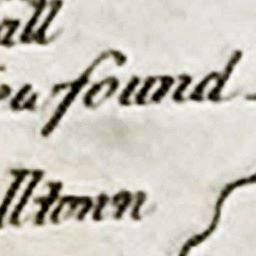 all
found
lltown